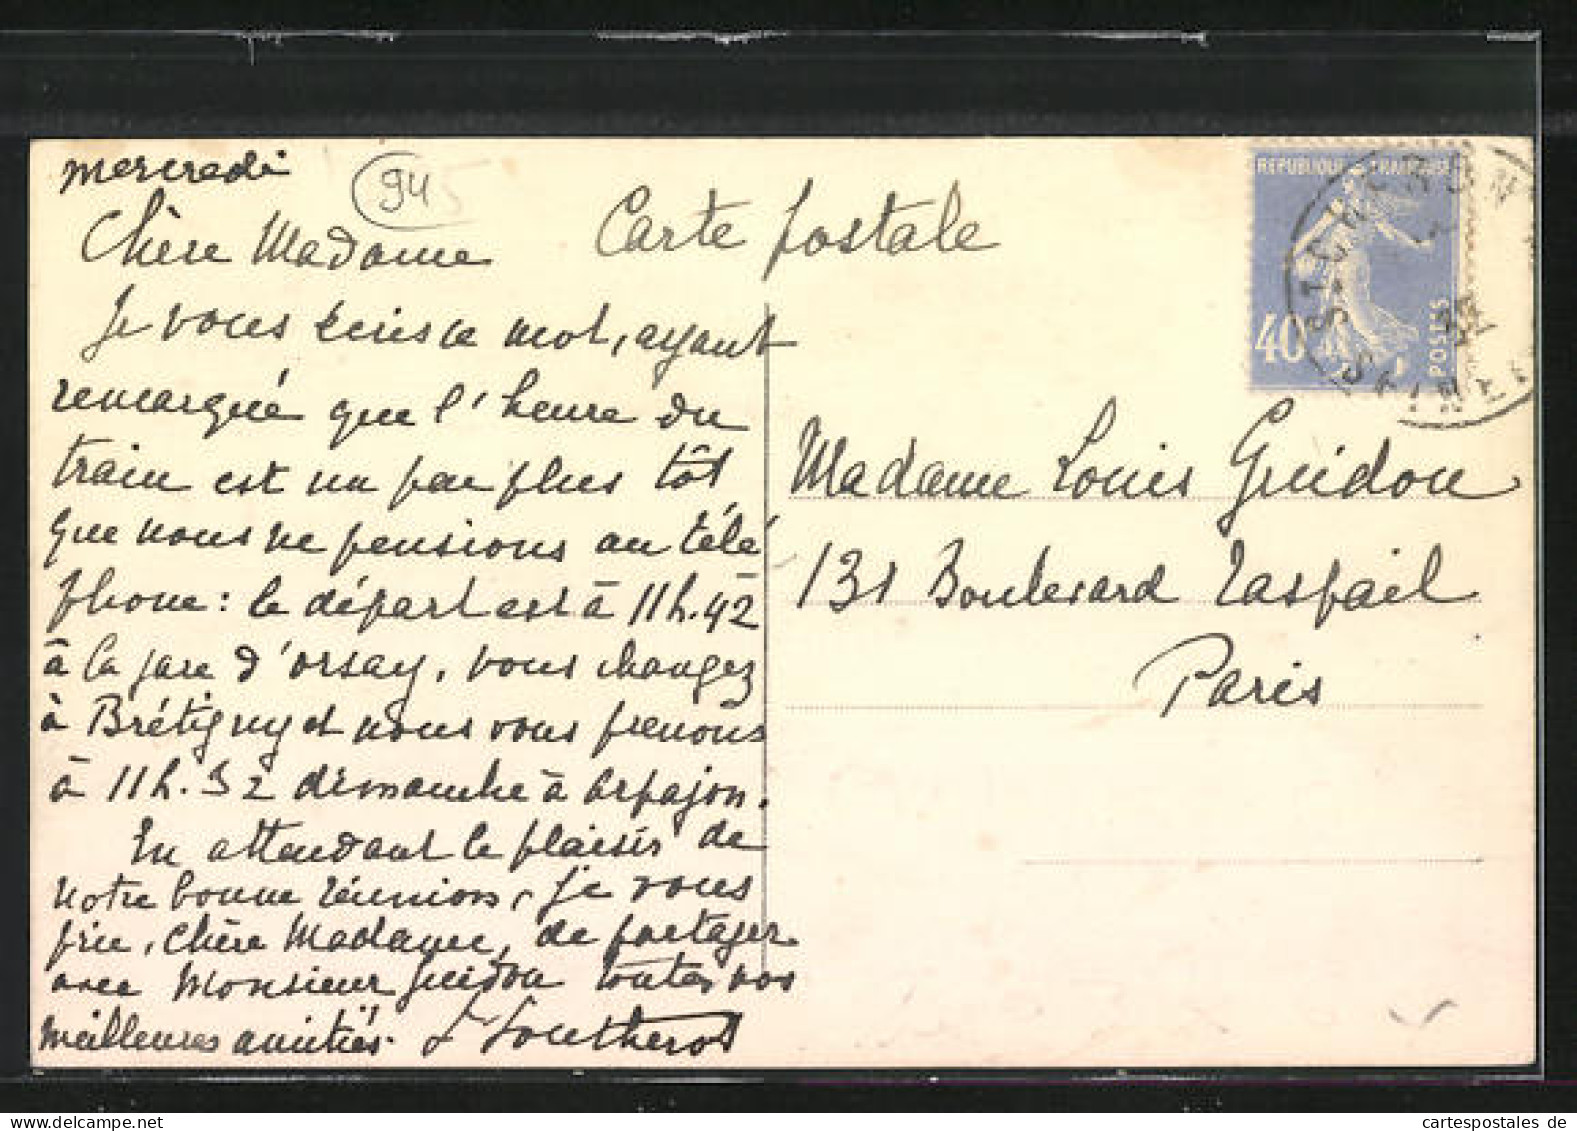 mercredi
94
5
Carte postale
Chère Madame
Je vous écris ce mot, ayant
remarqué que l'heure du
train est un peu plus tôt
que nous ne pensions au télé
phone : le départ est à 11h.42
à la gare d'orsay, vous changez
à Brétigny et nous vous prenons
à 11h.32 dimanche à Arpajon.
En attendant le plaisir de
notre bonne réunion, je vous
prie, chère Madame, de partager
avec Monsieur Guidou toutes nos
meilleures amitiés.
REPUBLIQUE FRANÇAISE
40
POSTES
Madame Louis Guidou
131 Boulevard Raspail
Paris
cartespostales de